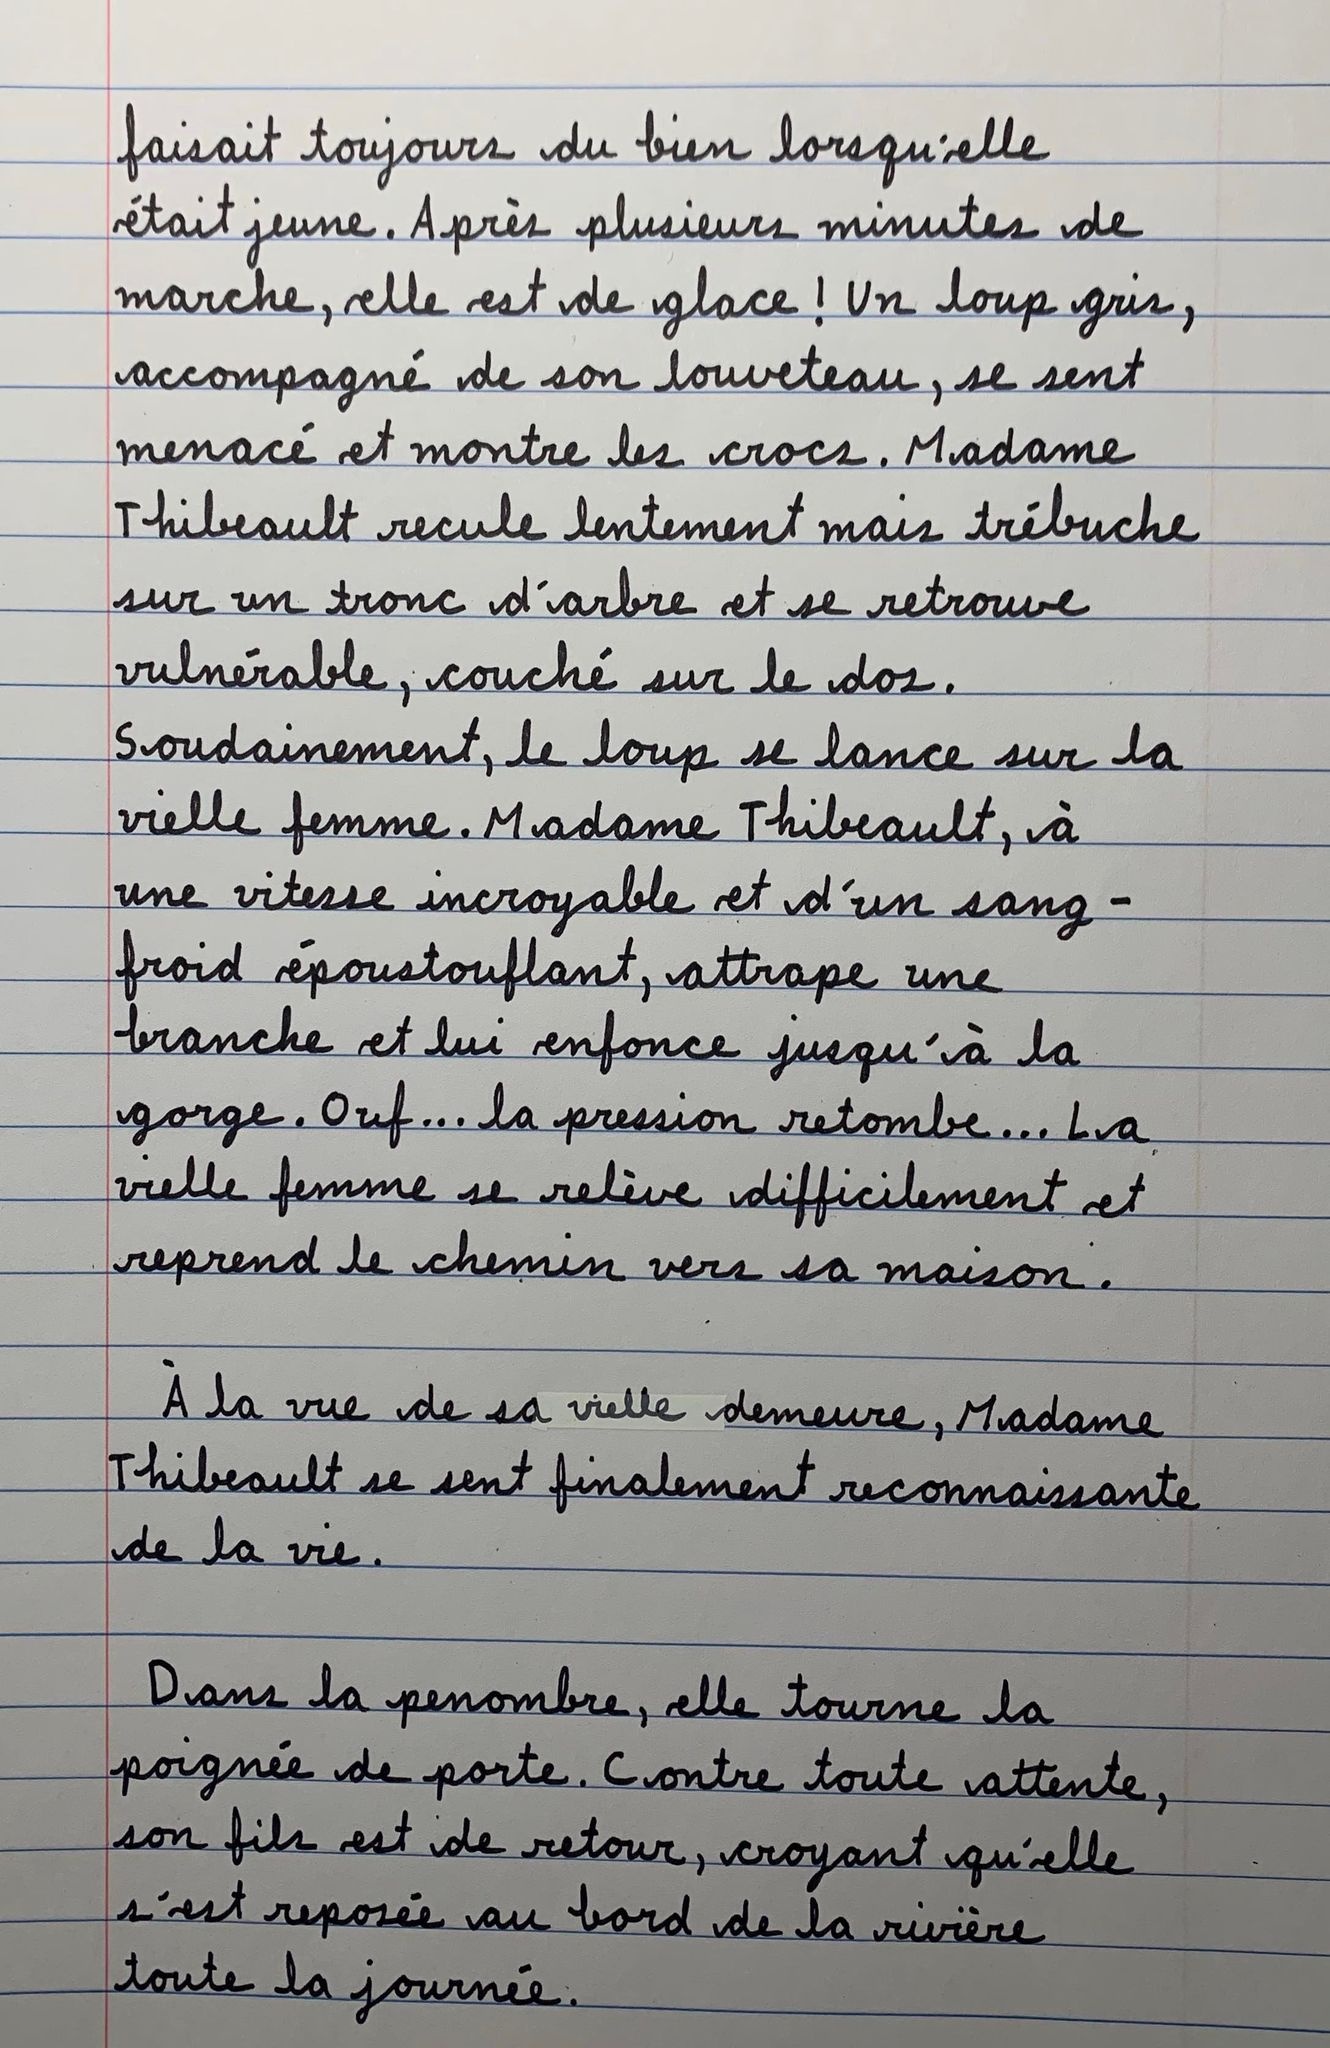 faisait toujours du bien lorsqu'elle
était jeune. Après plusieurs minutes de
marche, elle est de glace ! Un loup gris,
accompagné de son louveteau, se sent
menacé et montre les crocs. Madame
Thibeault recule lentement mais trébuche
sur un tronc d'arbre et se retrouve
vulnérable, couché sur le dos.
Soudainement, le loup se lance sur la
vielle femme. Madame Thibeault, à
une vitesse incroyable et d'un sang-
froid époustouflant, attrape une
branche et lui enfonce jusqu'à la
gorge. Ouf... la pression retombe... La
vielle femme se relève difficilement et
reprend le chemin vers sa maison.
À la vue de sa vielle demeure, Madame
Thibeault se sent finalement reconnaissante
de la vie.
Dans la penombre, elle tourne la
poignée de porte. Contre toute attente,
son fils est de retour, croyant qu'elle
s'est reposée au bord de la rivière
toute la journée.